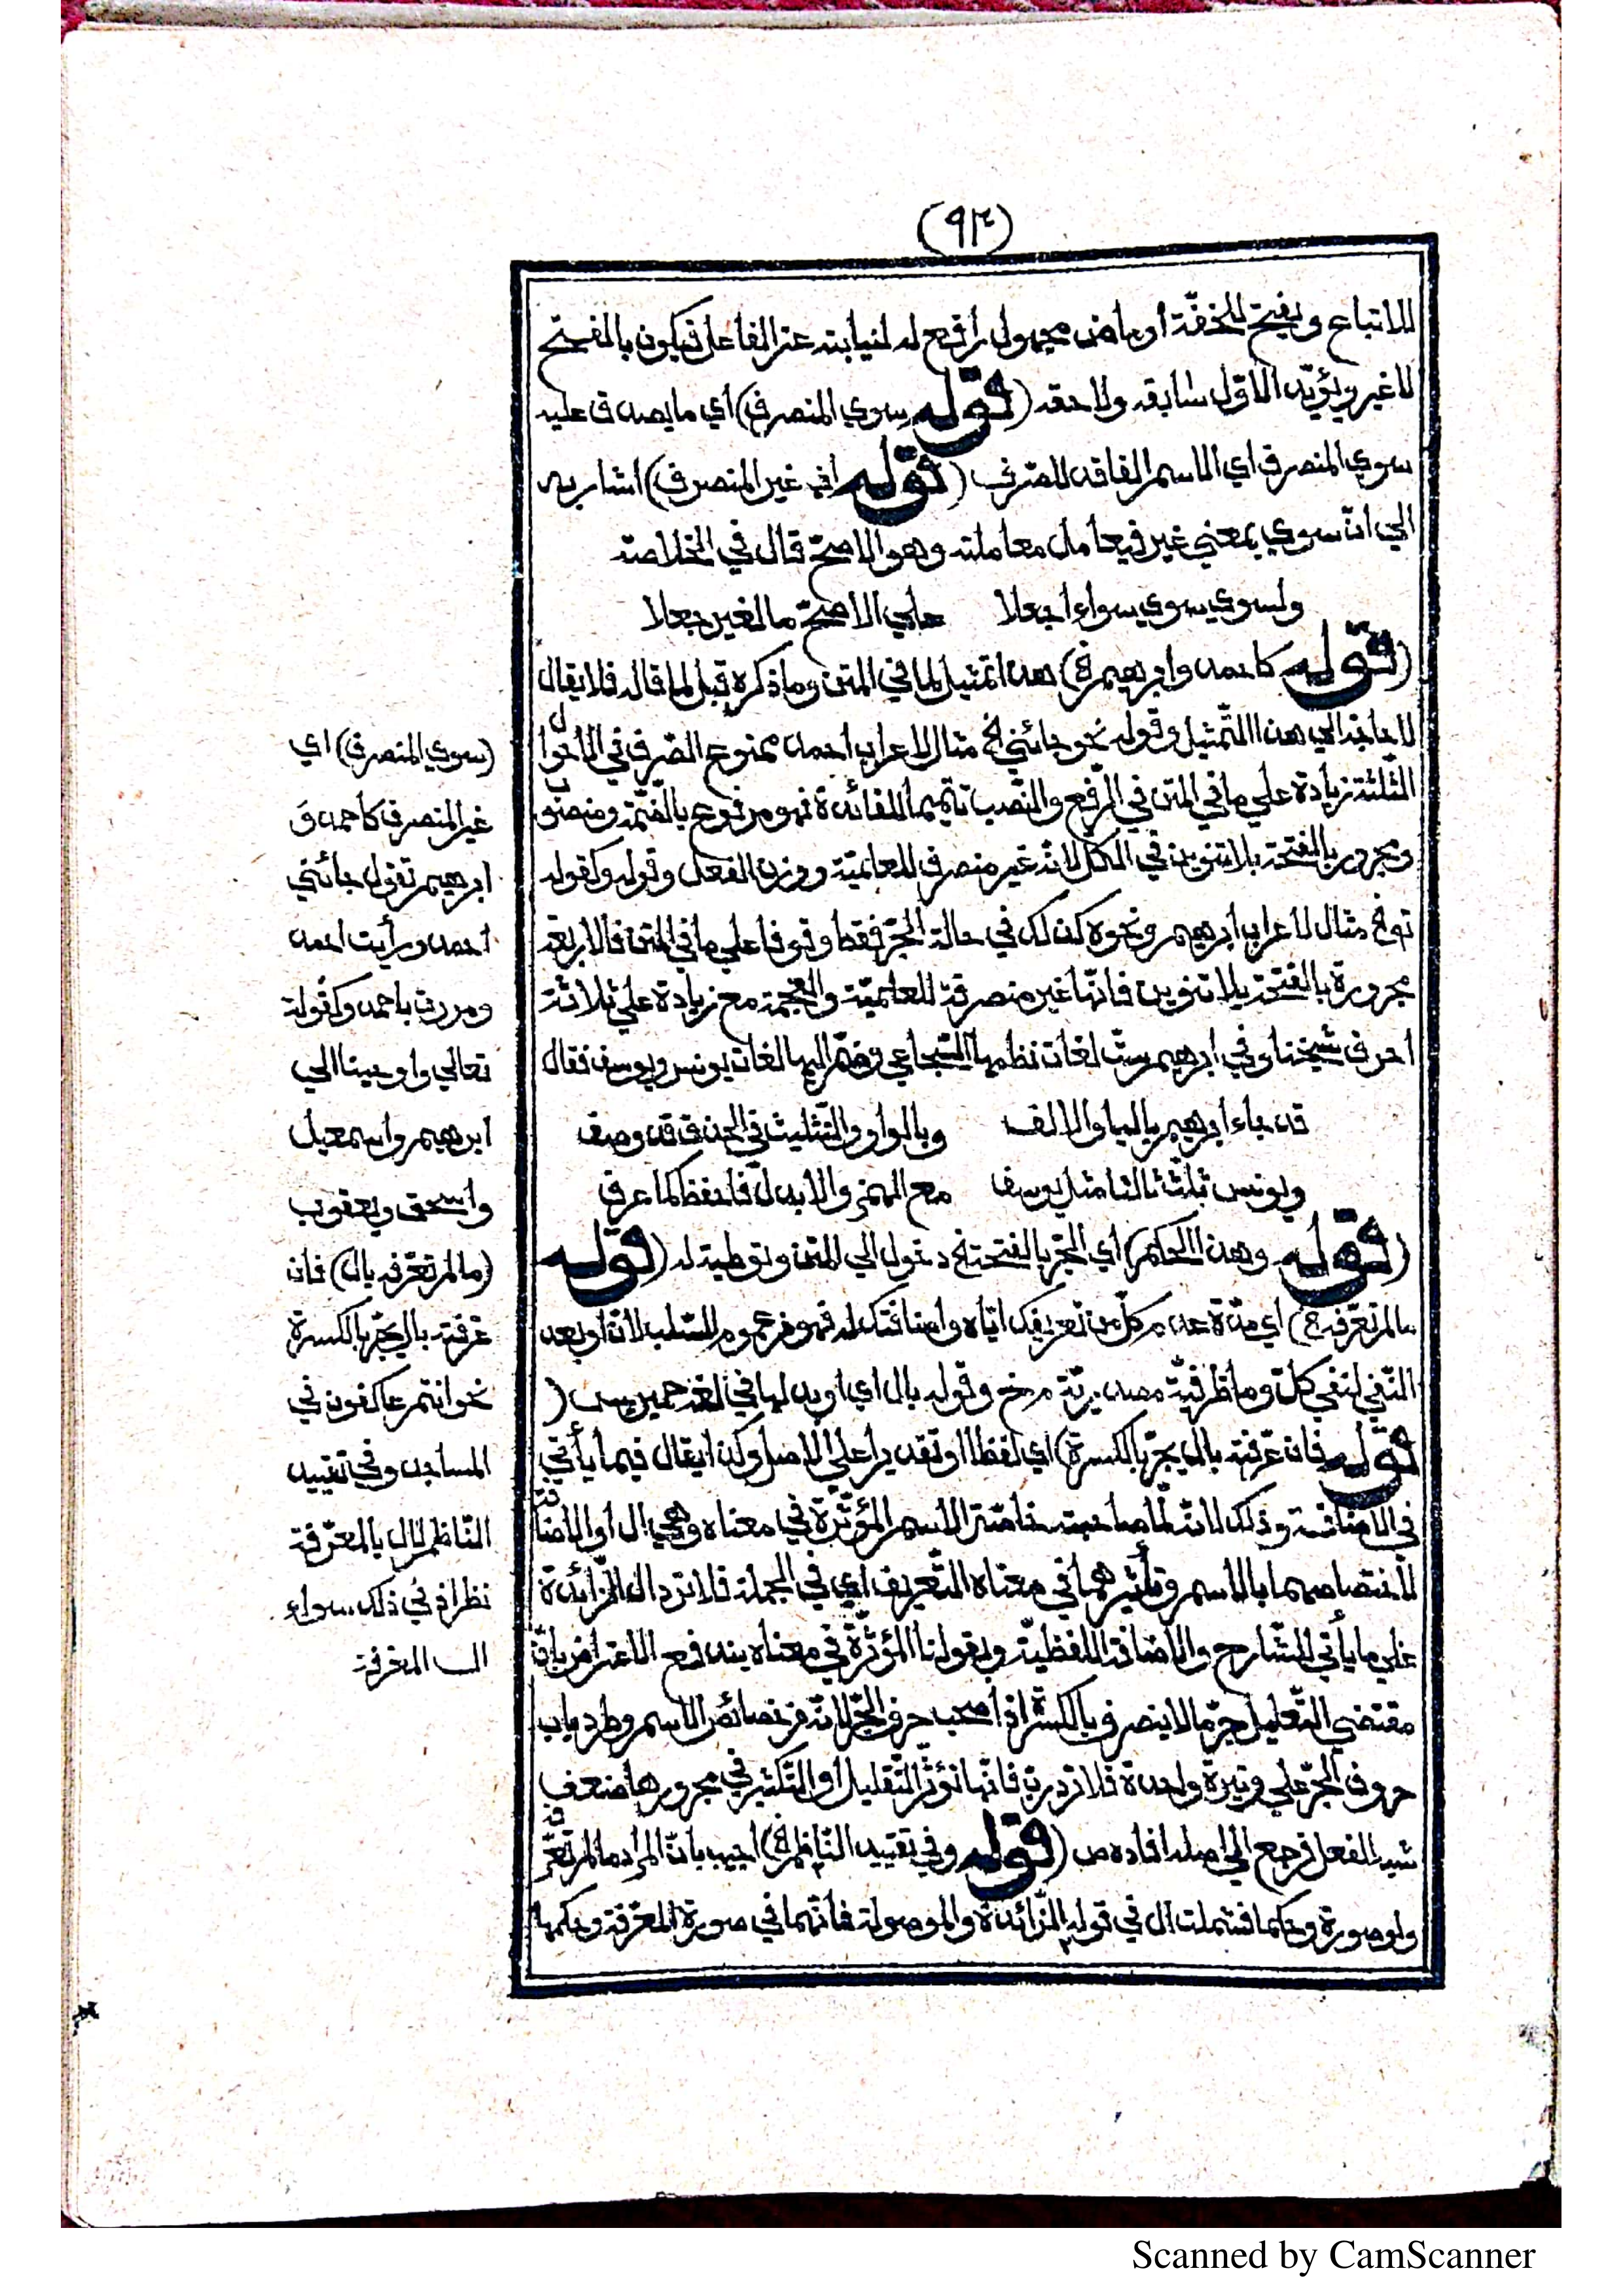 (٩٣)
للاتباع ويفتح للخفّة أو ماض مجهول رافع له لنيابته عن الفاعل فيكون بالفتح
لا غير ويؤيّد الاوّل سابقه ولاحقه (قوله سوي المنصرف) أي ما يصدق عليه
سوي المنصرف اي الاسم الفاقد للصّرف (قوله اي غير المنصرف) اشار به
الي انّ سوي بمعني غير فيعامل معاملته وهو الاصحّ قال في الخلاصة
ولسوي سوي سواء اجعلا علي الاصحّ ما لغير جعلا
(قوله كاحمد وابرهيم الخ) هذا تمثيل لما في المتن وما ذكره قبل لما قاله فلا يقال
لا حاجة الي هذا التّمثيل وقوله نحو جائني الخ مثال لاعراب احمد ممنوع الصّرف في الاحوال
الثّلثة زيادة علي ما في المتن في الرّفع والنّصب تتميما للفائدة فهو مرفوع بالضّمّة ومنصوب
ومجرور بالفتحة بلا تنوين في الكلّ لانّه غير منصرف للعلميّة ووزن الفعل وقوله وكقوله
تع الخ مثال لاعراب ابرهيم ونحوه كذلك في حالة الجرّ فقط وقوفا علي ما في المتن فالاربعة
مجرورة بالفتحة بلا تنوين فانّها غير منصرفة للعلميّة والعجمة مع زيادة علي ثلاثة
احرف شيخنا وفي ابرهيم ستّ لغات نظمها الشّجاعي وضمّ اليها لغات يونس ويوسف فقال
قد جاء ابرهيم باليا والالف وبالواو والتّثليث في الحذف قد وصف
ويونس ثلّث ثالثا مثل يوسف مع الهمز والابدال فاحفظ كما عرف
(قوله وهذا الحكم) أي الجرّ بالفتحة الخ دخول الي المتن وتوطية له (قوله
ما لم تعرّفه الخ) اي مدّة عدم كلّ من تعريفك ايّاه واضافتك له فهو من عموم السّلب لانّ او بعد
النّفي لنفي كلّ وما ظرفيّة مصدريّة م خ وقوله بال اي او بدلها في لغة حمير س (
قوله فان عرّفته بال يجرّ بالكسرة) اي لفظا او تقديرا علي الاصل وكذا يقال فيما يأتي
في الاضافة وذلك لانّه لمّا صاحبته خاصّة الاسم المؤثّرة في معناه وهي ال أو الاضافة
لاختصاصهما بالاسم وتأثيرهما في معناه التّعريف اي في الجملة فلا ترد ال الزّائدة
علي ما يأتي للشّارح والاضافة اللّفظيّة وبقولنا المؤثّرة في معناه يندفع الاعتراض بانّ
مقتضي التّعليل جرّ ما لا ينصرف بالكسرة اذا صحب حرف الجرّ لانّه من خصائص الاسم وطرد باب
حروف الجرّ علي وتيرة واحدة فلا ترد ربّ فانّها تؤثّر التّقليل أو التّكثير في مجرورها ضعف
شبه الفعل فرجع الي اصله افاده ص (قوله وفي تقييد النّاظم الخ) اجيب بانّ المراد ما لم تعرّفه
ولو صورة وحكما فشملت ال في قوله الزّائدة والموصولة فانّهما في صورة المعرّفة وحكمها
(سوي المنصرف) اي
غير المنصرف كاحمد وَ
ابرهيم تقول جائني
احمد ورأيت احمد
ومررت باحمد وكقوله
تعالي واوحينا الي
ابرهيم واسمعيل
واسحق ويعقوب
(ما لم تعرّفه بال) فان
عرّفته بال يجرّ بالكسرة
نحو انتم عاكفون في
المساجد وفي تقييد
النّاظم لال بالمعرّفة
نظر اذ في ذلك سواء
ال المعرفة
Scanned by CamScanner